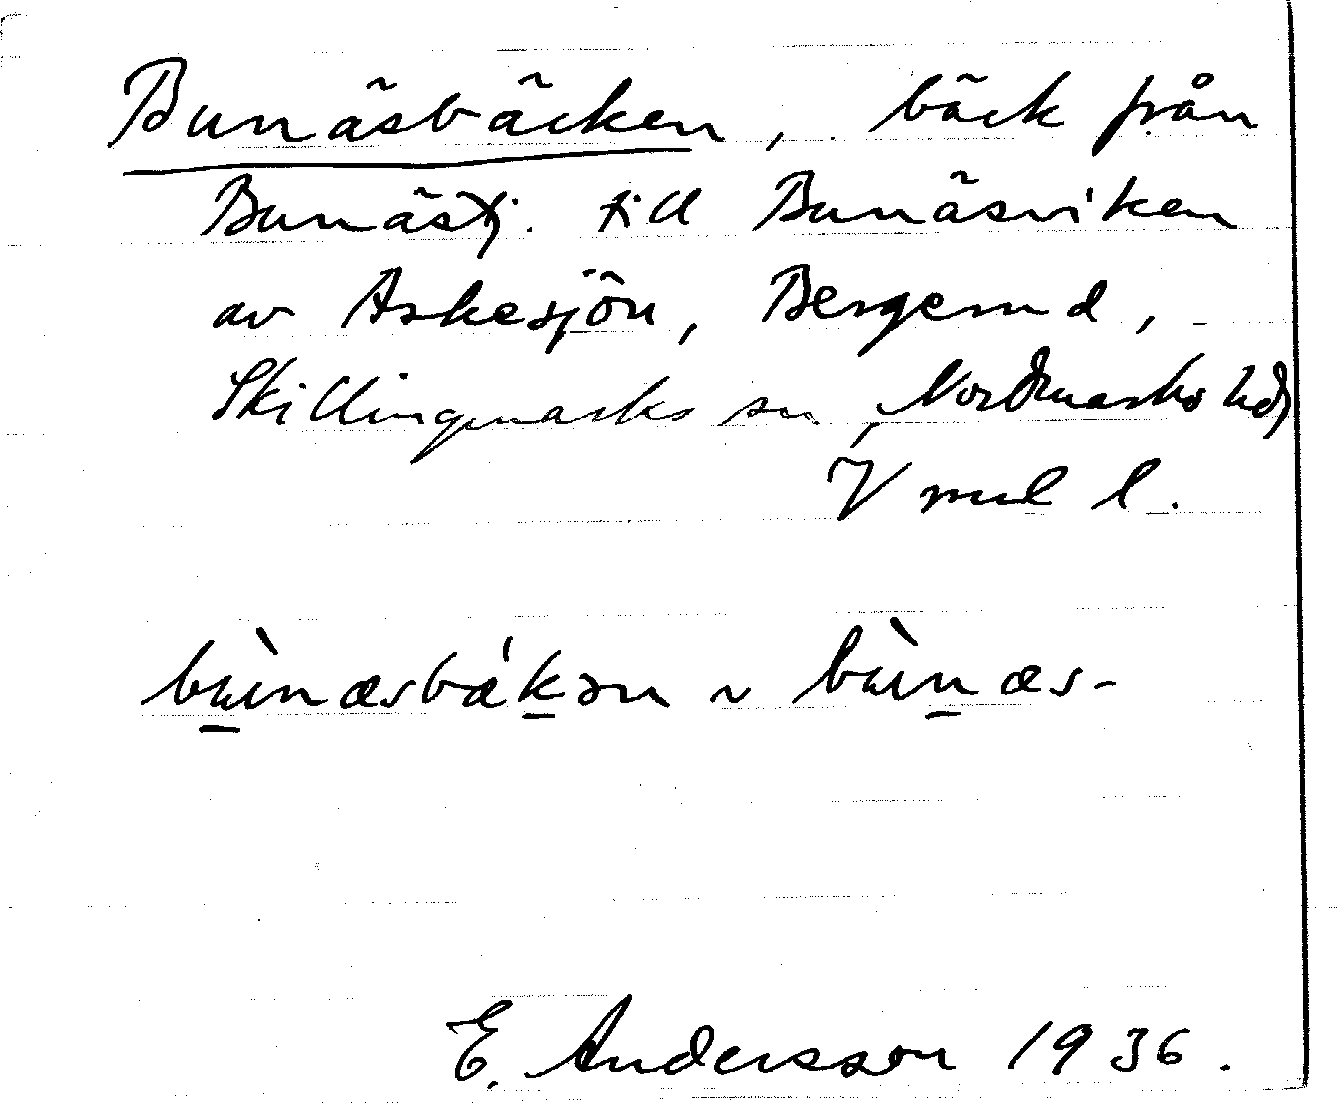 Bunäsbäcken, bäck från
Bunästj. till Bunäsviken
av Askesjön, Bergerud,
Skillingmarks sn, Nordmarks hd,
Vrml l.
bùnæsbák̠ən ~ bùn̠æs-
E. Andersson 1936.